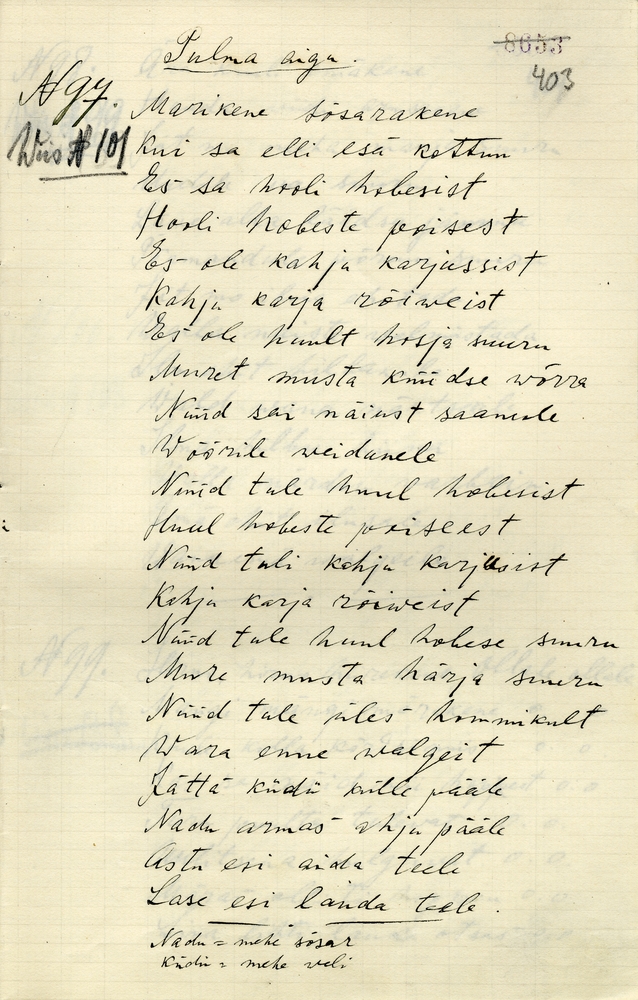 Pulma aigu.
8653
403
N 97.
Wiis N 101
Marikene sõsarakene
Kui sa elli esä kottun
Es sa hooli hobesist
Hooli hobeste poisest
Es ole kahju karjussist
Kahju karja rõiweist
Es ole huult hosja suuru
Muret musta küüdse wõrra
Nüüd sai näiust saanule
Wöörile weidunele
Nüüd tule huul hobesist
Huul hobeste poiseest
Nüüd tuli kahju karjusist
Kahju karja rõiweist
Nüüd tule huul hobese suuru
Mure musta härja suuru
Nüüd tule üles hommikult
Wara enne walgeit
Jättä küdü külle pääle
Nadu armas ahju pääle
Astu esi aida teele
Lase esi lauda teele.
Nadu = mehe sõsar
Küdü = mehe veli